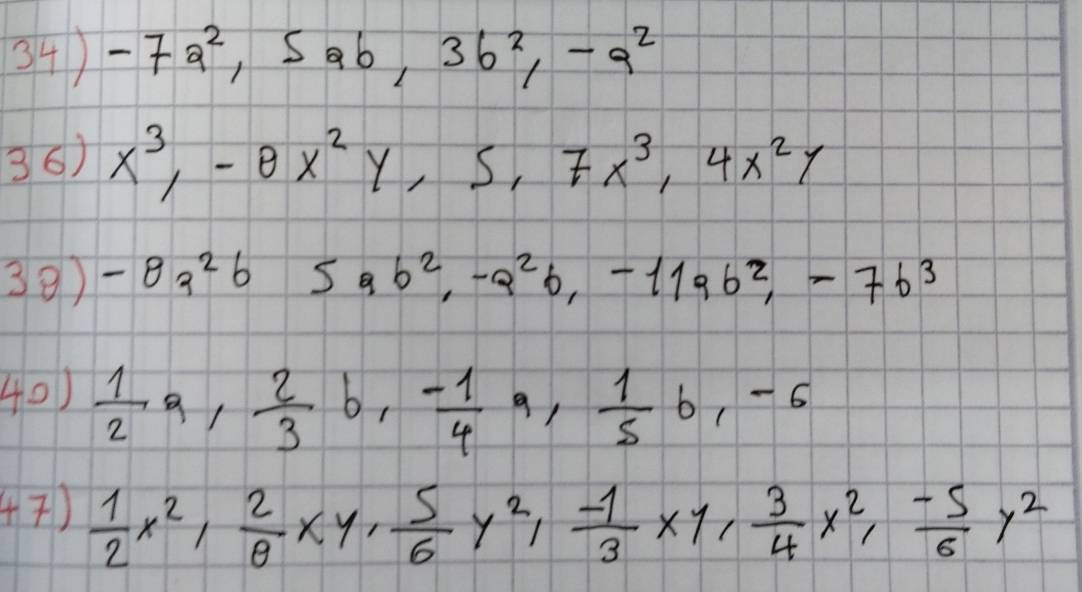 34) -7a², 5ab, 3b², -a²
36) x³, -8x²y, 5, 7x³, 4x²y
38) -8a²b 5ab², -a²b, -11ab², -7b³
40) 1/2 a, 2/3 b, -1/4 a, 1/5 b, -6
47) 1/2 x², 2/8 xy, 5/6 y², -1/3 xy, 3/4 x², -5/6 y²